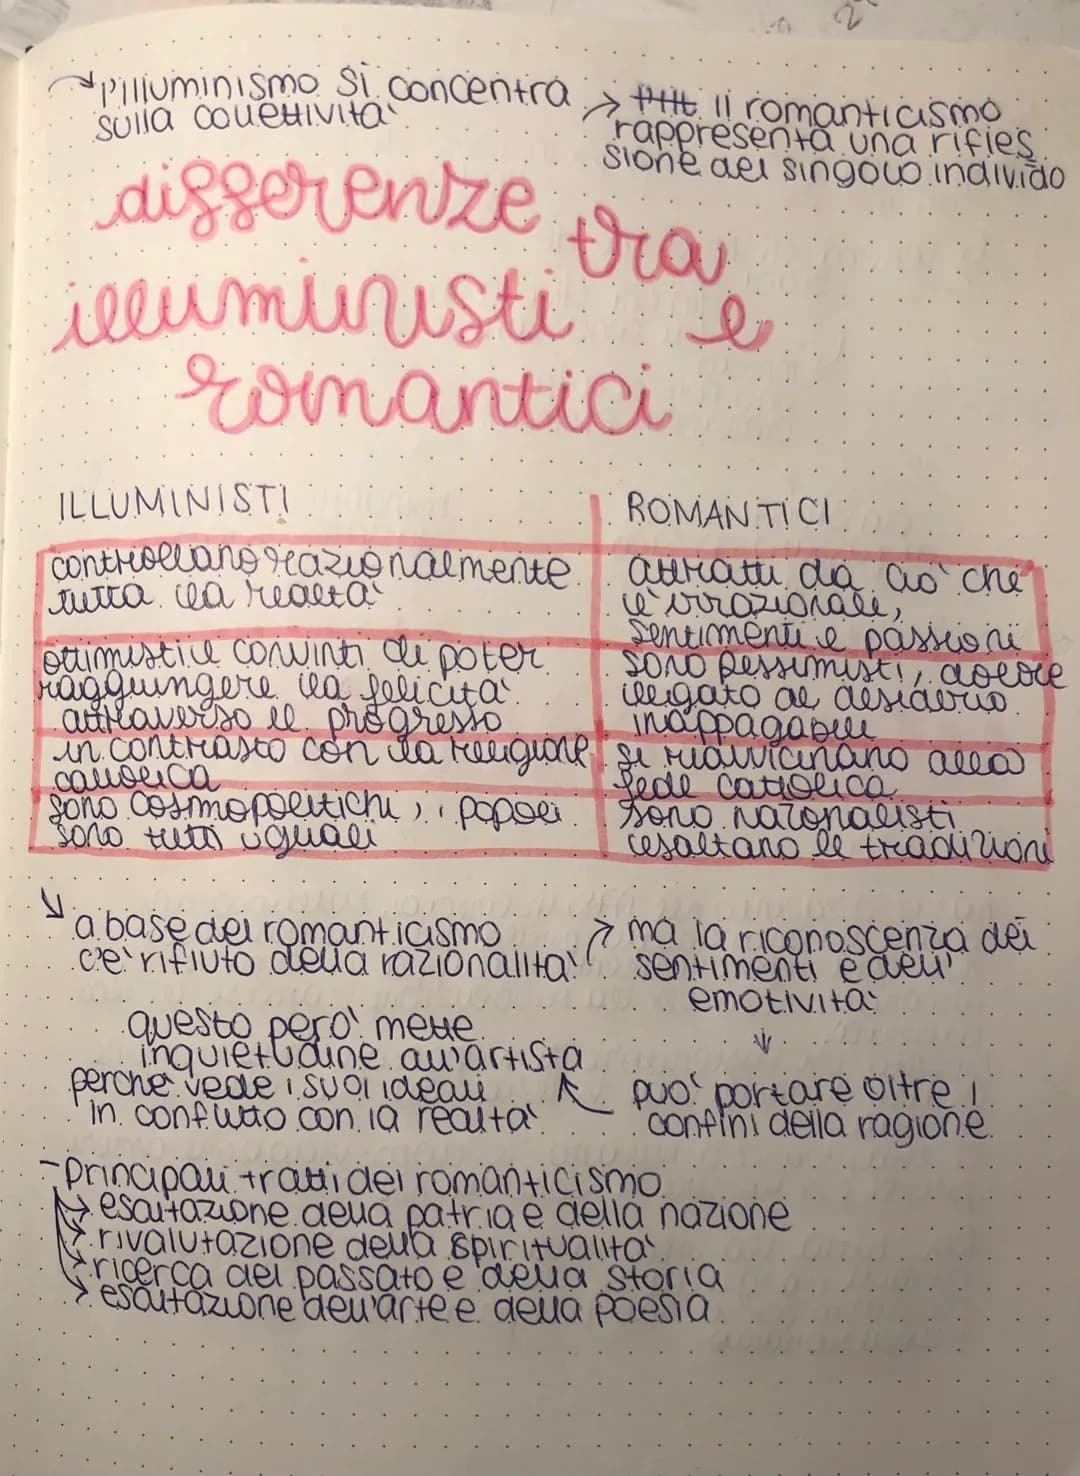 l'illuminismo si concentra
sulla collettività
→ il romanticismo
rappresenta una rifles
sione del singolo individo
differenze tra
illuministi e
romantici
ILLUMINISTI
ROMANTICI
controllano razionalmente
tutta la realtà
attratti da ciò che
è irrazionale,
sentimenti e passioni
ottimisti e convinti di poter
raggiungere la felicità
attraverso il progresso
sono pessimisti, dolore
legato al desiderio
inappagabile
in contrasto con la religione
cattolica
si riavvicinano alla
fede cattolica
sono cosmopolitichi, i popoli
sono tutti uguali
sono nazonalisti
esaltano le tradizioni
a base del romanticismo
c'è rifiuto della razionalità
→ ma la riconoscenza dei
sentimenti e dell'
emotività
↓
può portare oltre i
confini della ragione.
questo però mette
inquietudine all'artista
perché vede i suoi ideali
in conflitto con la realtà
- principali tratti del romanticismo
→ esaltazione della patria e della nazione
→ rivalutazione della spiritualità
→ ricerca del passato e della storia
→ esaltazione dell'arte e della poesia